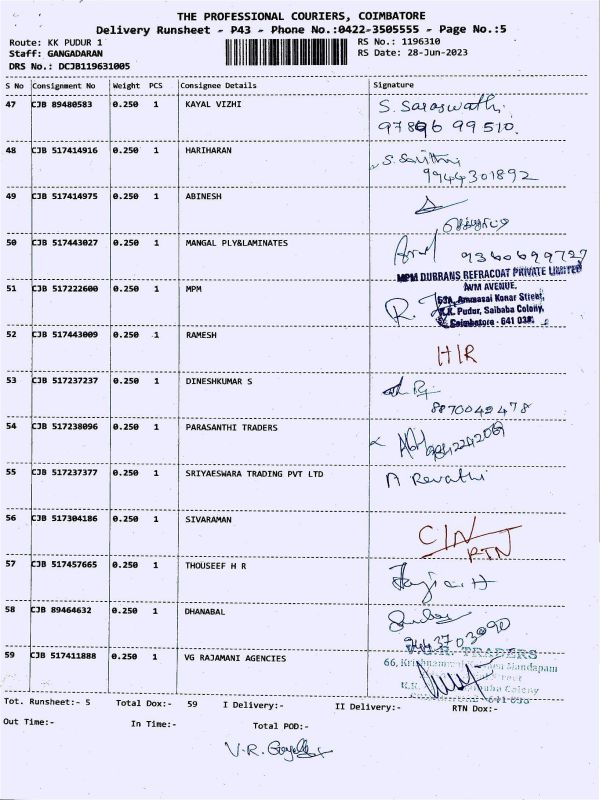 THE PROFESSIONAL COURIERS, COIMBATORE
Delivery Runsheet - P43 - Phone No.:0422-3505555 - Page No.:5
Route: KK PUDUR 1 RS No.: 1196310
Staff: GANGADARAN RS Date: 28-Jun-2023
DRS No.: DCJB119631005
S No Consignment No Weight PCS Consignee Details Signature
47 CJB 89480583 0.250 1 KAYAL VIZHI S. Saraswathi
97896 99510.
48 CJB 517414916 0.250 1 HARIHARAN
9944301892
49 CJB 517414975 0.250 1 ABINESH
50 CJB 517443027 0.250 1 MANGAL PLY&LAMINATES 9360699727
MPM DURRANS REFRACOAT PRIVATE LIMITED
AVM AVENUE,
51 CJB 517222600 0.250 1 MPM Konar Street,
K.K. Pudur, Saibaba Colony,
Coimbatore - 641 038.
52 CJB 517443009 0.250 1 RAMESH
H/R
53 CJB 517237237 0.250 1 DINESHKUMAR S
8870049478
54 CJB 517238096 0.250 1 PARASANTHI TRADERS
55 CJB 517237377 0.250 1 SRIYAESWARA TRADING PVT LTD Revathi
56 CJB 517304186 0.250 1 SIVARAMAN
C/N
RTN
57 CJB 517457665 0.250 1 THOUSEEF H R
58 CJB 89464632 0.250 1 DHANABAL
TRADERS
59 CJB 517411888 0.250 1 VG RAJAMANI AGENCIES 66, Mandapam
Street
K.K. Colony
Tot. Runsheet:- 5 Total Dox:- 59 I Delivery:- II Delivery:- RTN Dox:-
Out Time:- In Time:- Total POD:-
V.R.